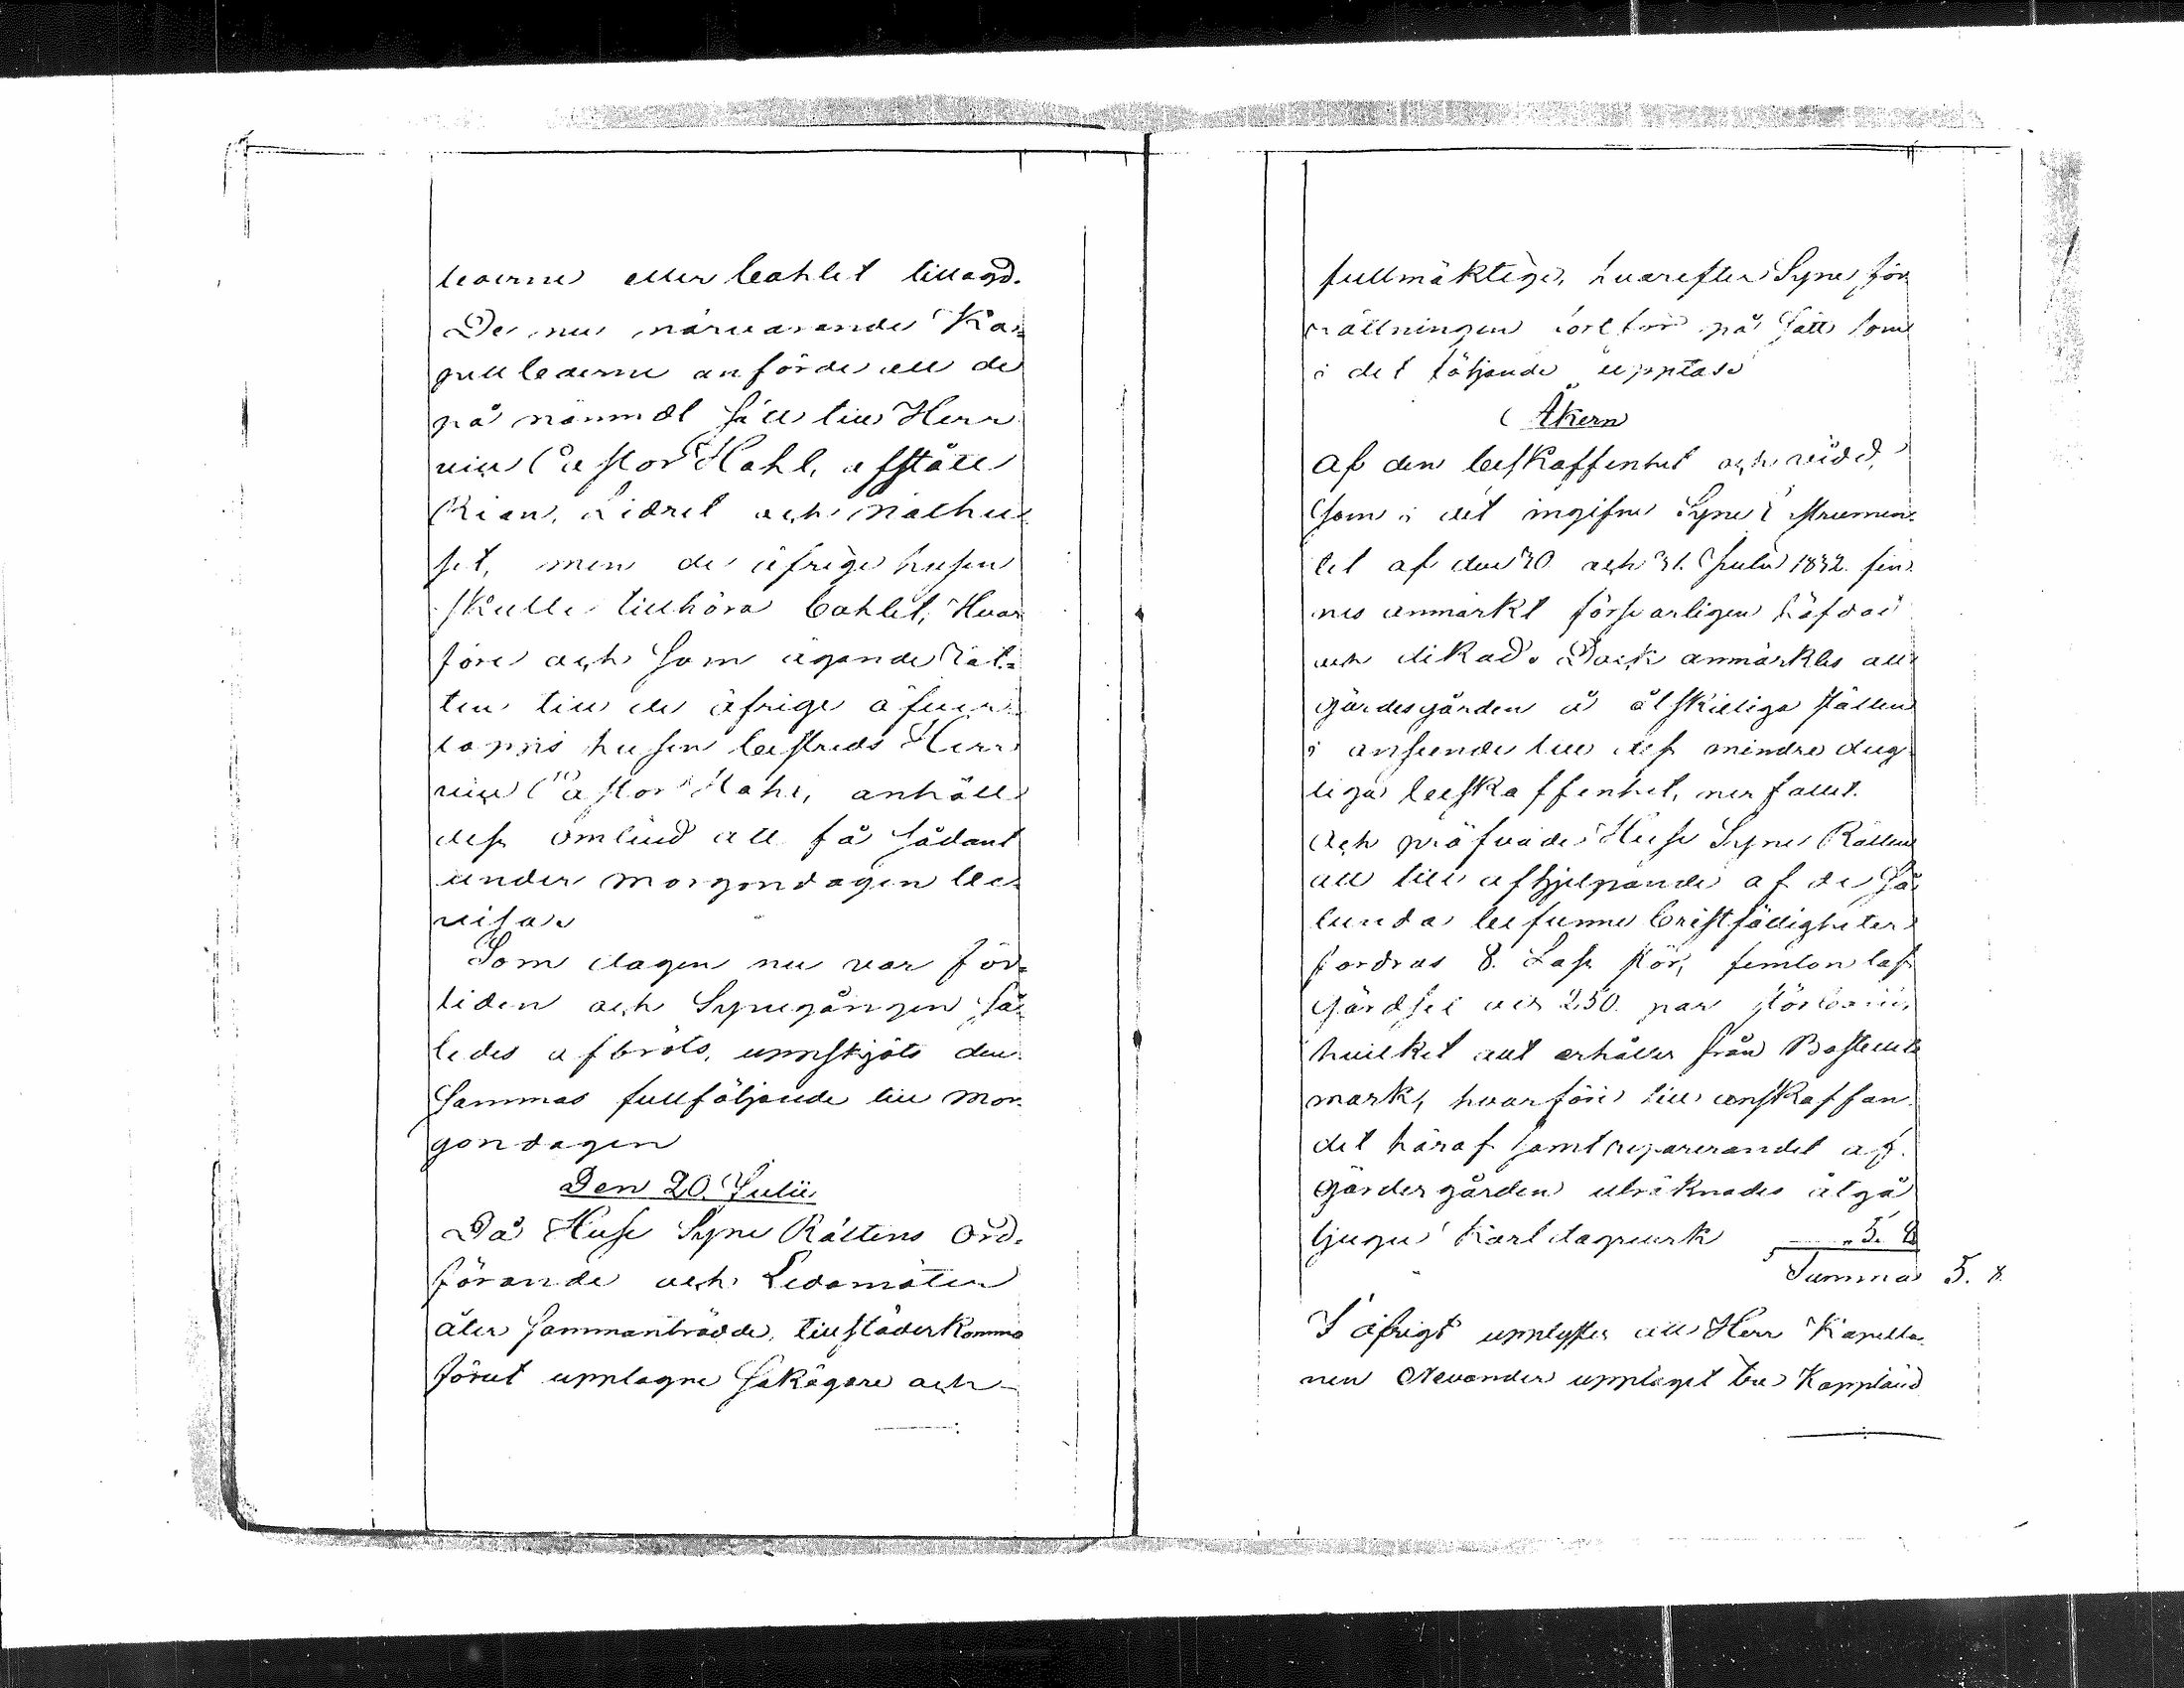 boerne eller bohlet tillagd.
De nu närvarande Ka-
pellboerne anförde att de
på nämndt sätt till Herr
vice Pastor Hahl, afstått
Rian, Lidret och Nöthu-
set, men de öfrige husen
skulle tillhöra bohlet, Hvar
före och som ägande rät-
ten till de öfrige åfvan
husen bestreds Herr
vice Pastor Hahl, anhöll
dess ombud att få sådant
under morgondagen be-
visa
Som dagen nu var för-
liden och Synegången så-
ledes afbröts, uppskjöts den
sammas fullföljande till mor-
gondagen
Den 20. Julii
Då Huse Syne Rättens Ord-
förande och Ledamöter
åter sammanträdde, tillstädeskommo
förut upptagne sakägare och
fullmäktige, hvarefter Syne för
rättningen fortfor på sätt som
i det följande upptases
Åkern
af den beskaffenhet och vidd,
som i det ingifne Syne Instrumen-
tet af den 30 och 31. Julii 1832. fin-
nes anmärkt försvarligen häfdad
och dikad. Dock anmärktes att
gärdesgården å åtskillige ställen
i anseende till dess mindre dug-
liga beskaffenhet, nerfallit.
Och pröfvade Huse Syne Rätten
att till afhjelpande af de så-
lunda befunne bristfälligheter
fordras 8. Lass stör, femton lass
Gärdsel och 250. par störband,
hvilket allt erhålles från Boställets
mark, hvarföre till anskaffan-
det häraf samt reparerandet af
Gärdesgården uträknades åtgå
tjugu Karl dagsverk 5. 8
Summa 5. 8.
I öfrigt upplystes att Herr Kapella-
nen Nevander upptagit tre Kappland